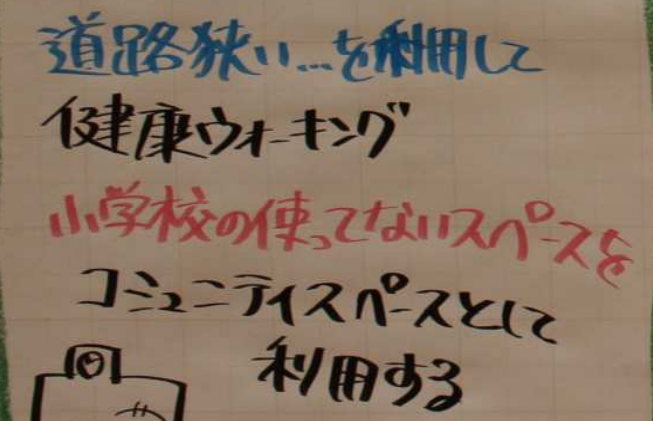 道路狭い…を利用して
健康ウォーキング
小学校の使ってないスペースを
コミュニティスペースとして
利用する